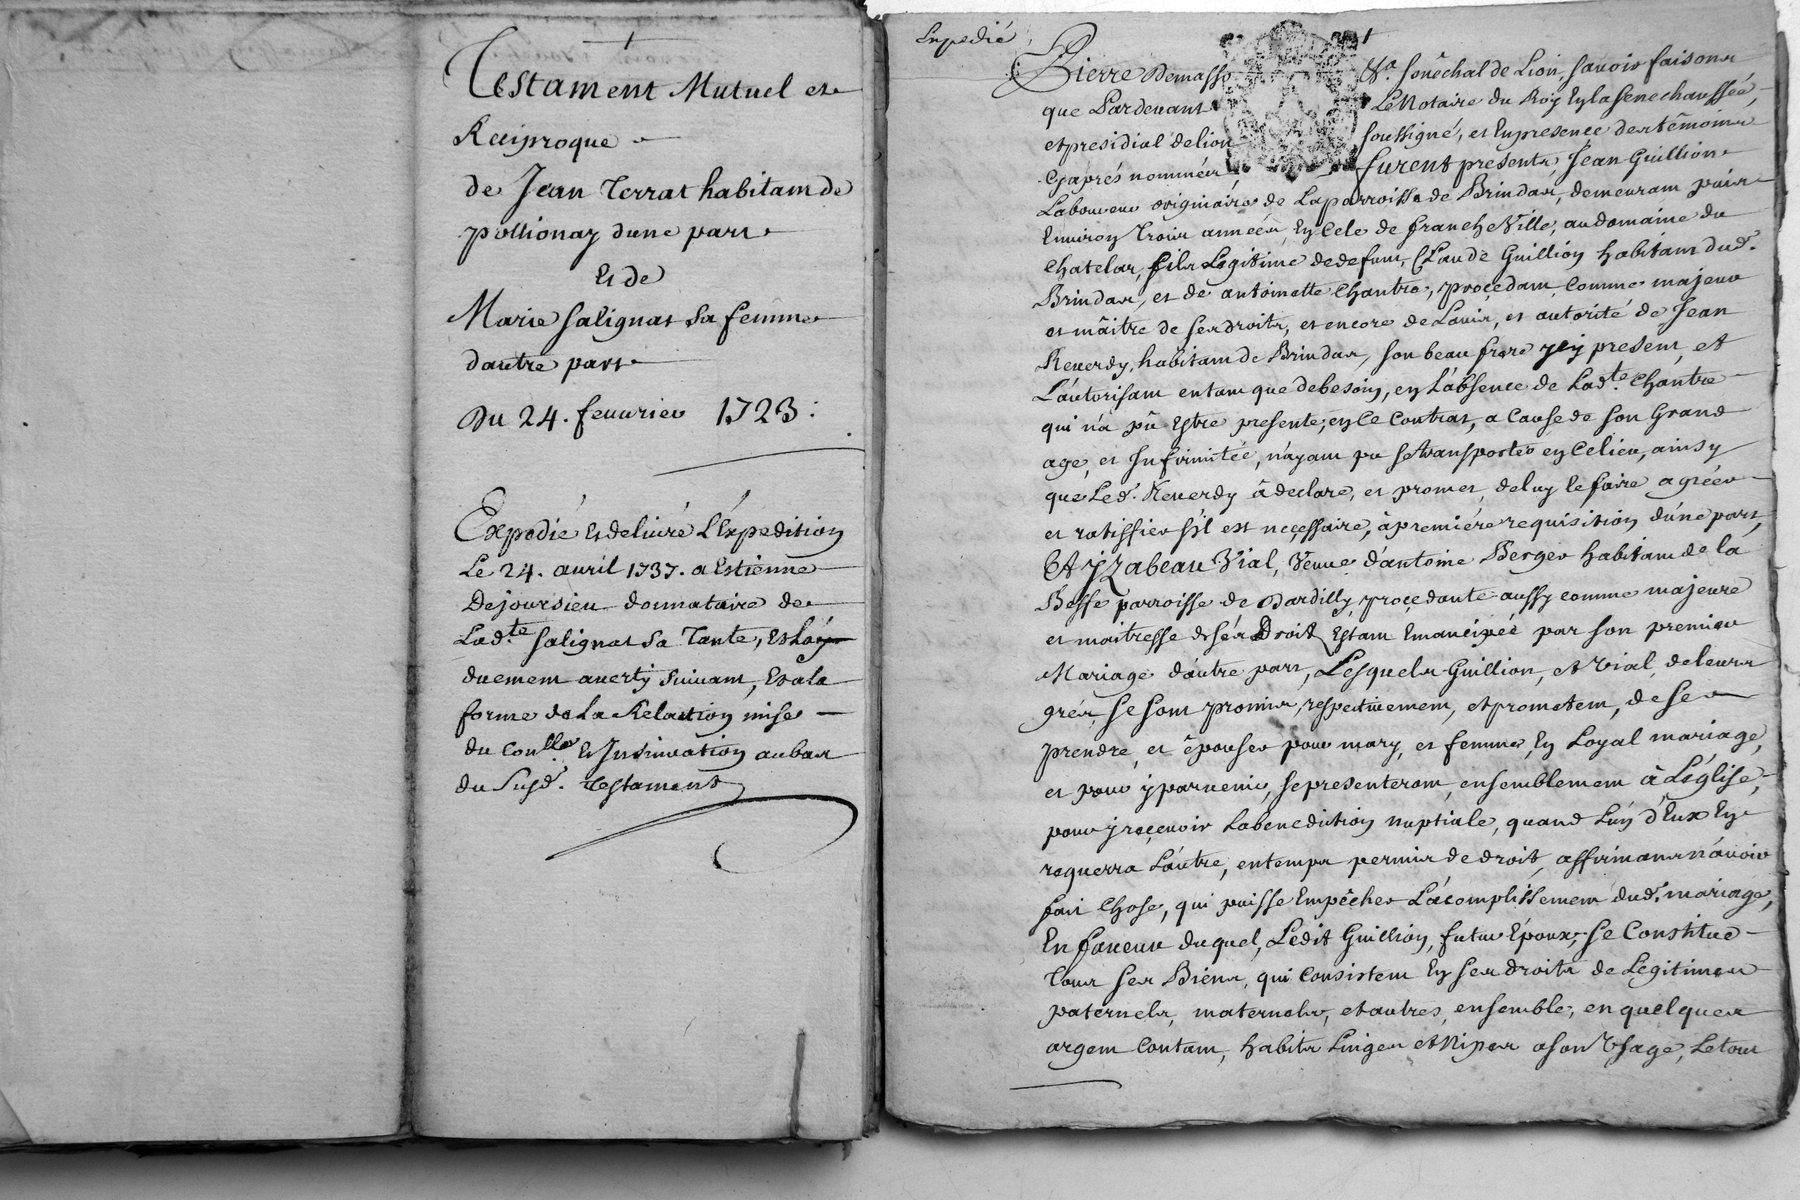 Testament Mutuel et
Reciproque
de Jean Terrat habitant de
pollionay dune part
Et de
Marie salignat sa femme
dautre part
Du 24. feuurier 1723:
Expedié et deliuré L'Expedition
Le 24. auril 1737. a Estienne
Dejoursieu donnataire de
Lad.te salignat sa Tante, et
duement auerty suiuant, Et a la
forme de La Relaction mise
du Con.lle et Insinuation au bas
du Susd. Testament
Expedié
Pierre Demasso &a. senêchal de Lion, sauoir faisons
que Pardeuant Le Notaire du Roy En la senechaussée,
et presidial de lion soussigné, et En presence des têmoins
Cy aprés nommés, furent presents, Jean Guillion
Laboureur originaire de La parroisse de Brindas, demeurant puis
Enuiron Trois années, En Cele de francheVille, au domaine du
Chatelar, fils Legitime de defunt, Claude Guillion habitant dud.
Brindas, et de antoinette Chantre, proçedant, Comme majeur
et mâitre de ses droits, et encore de L'auis, et autorité de Jean
Reuerdy, habitant de Brindas, son beau frere icy present, et
L'autorisant en tant que de besoin, en L'absence de Lad.te Chantre
qui n'a pû Estre presente, en Ce Contrat, a Cause de son Grand
age, et Infirmitée, n'ayant pu se transporter en Ce lieu, ainsy
que Led. Reuerdy â declare, et promet, de luy le faire agréer
et ratiffier s'il est neçessaire, â premiére requisition d'une part,
Et Yzabeau Vial, Veuue d'antoine Berger habitant de la
Besse parroisse de Dardilly, proçedante aussy comme majeure
et maitresse de sés Droits Estant Emancipée par son premier
Mariage d'autre part, Lesquels Guillion, et Vial, de leurs
grés, se sont promis, respectiuement, et prometent, de se
prendre, et êpouser pour mary, et femme, En Loyal mariage,
et pour y paruenir, se presenteront, ensemblement à L'église,
pour y reçeuoir La benediction nuptiale, quand L'un d'Eux En
requerra L'autre, en temps permis de droit, affirmans n'auoir
fait Chose, qui puisse Empêcher L'acomplissement dud. mariage,
En faueur duquel, Ledit Guillion, futur Époux, se Constitue
Tous ses Biens, qui Consistent En ses droits de Légitimes
paternels, maternels, et autres, ensemble, en quelques
argent Contant, habits Linges et Nipes a son Vsage, Le tout